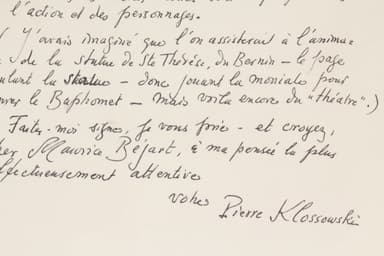 l'action et des personnages.
( J'avais imaginé que l'on assisterait à l'anima-
de la statue de Ste Thérèse, du Bernin – le page
ulant la statue – donc jouant la moniale pour
le Baphomet – mais voilà encore du "théâtre".)
Faites-moi signe, je vous prie - et croyez,
er Maurice Béjart, à ma pensée la plus
ffectueusement attentive
votre Pierre Klossowski